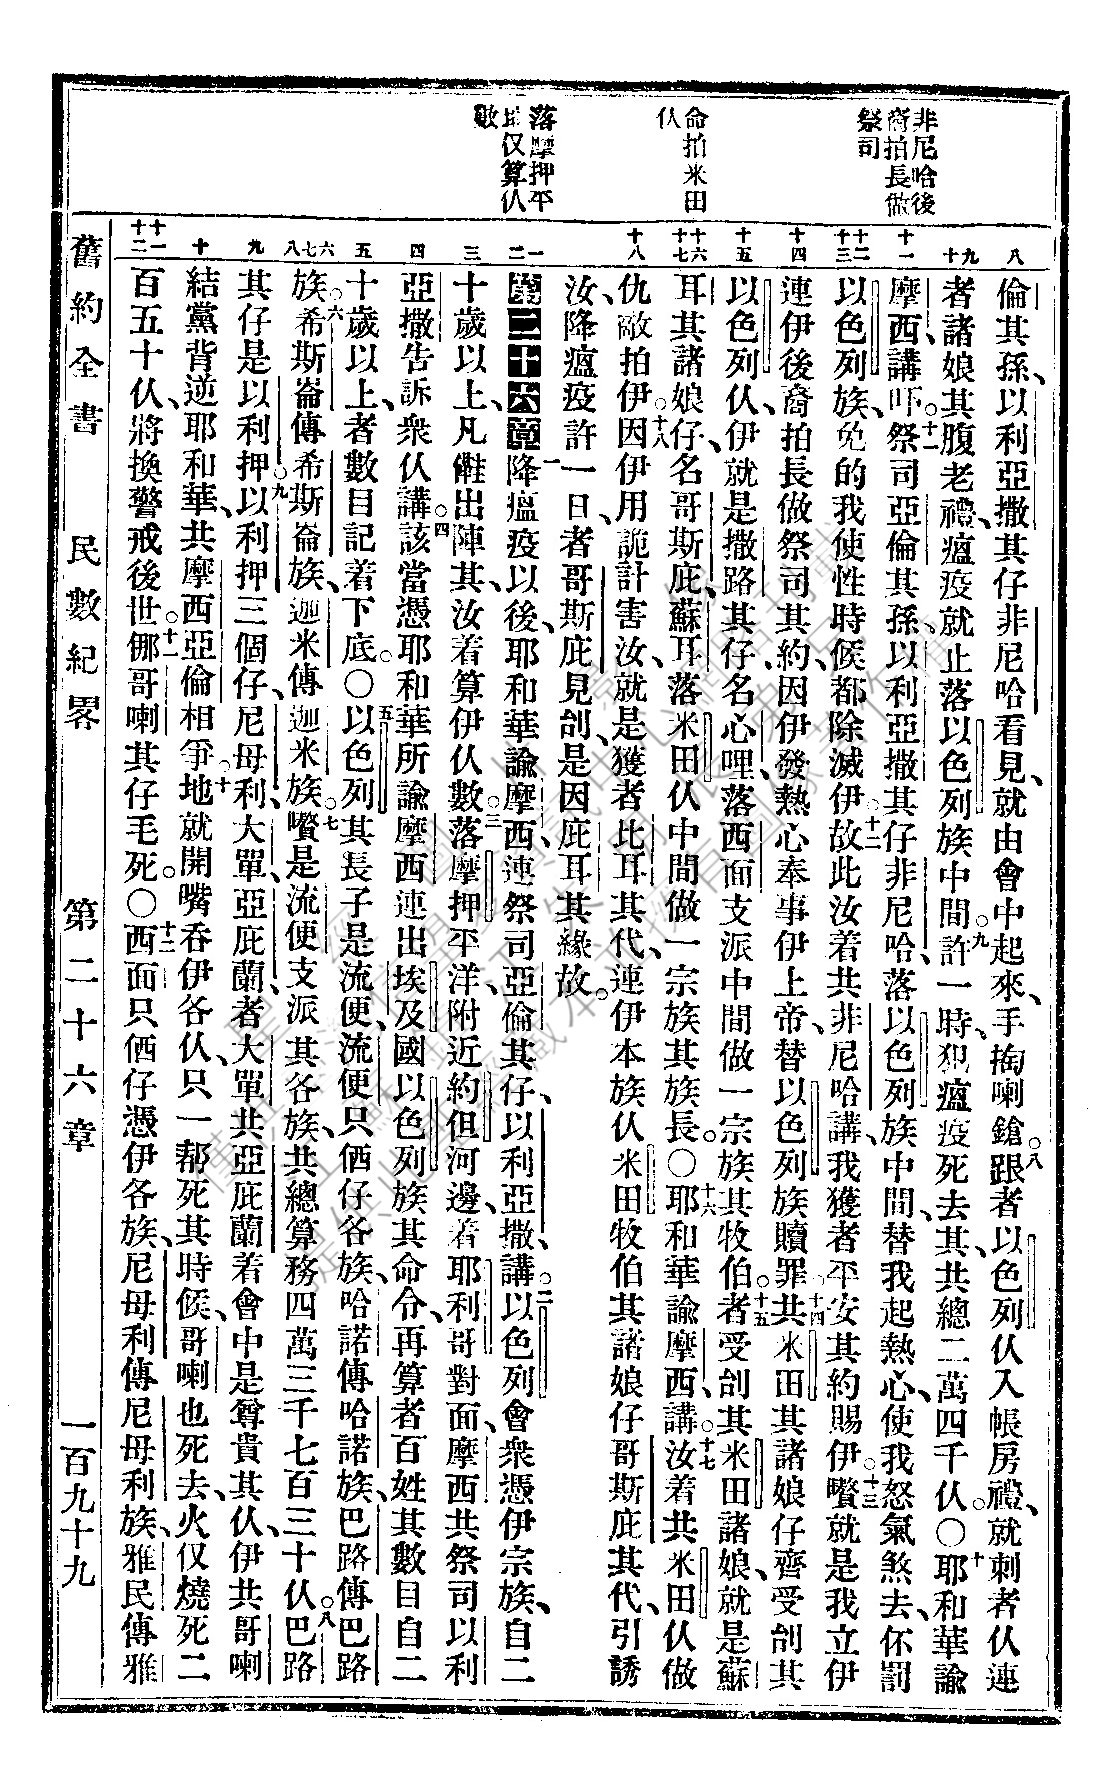 非尼哈後
裔拍長做
祭司
命拍米田
仈
落摩押平
地仅算仈
數
八
九 十
十一
十二 十三
十四
十五
十六 十七
十八
一 二
三
四
五
六 七 八
九
十
十一 十二
倫其孫、以利亞撒其仔非尼哈看見、就由會中起來、手掏喇鎗。八跟者以色列仈入帳房禮、就刺者仈連
者諸娘其腹老禮、瘟疫就止落以色列族中間。九許一時、犯瘟疫死去其、共總二萬四千仈。〇十耶和華諭
摩西講、吥。十一祭司亞倫其孫、以利亞撒其仔非尼哈、落以色列族中間、替我起熱心、使我怒氣煞去、伓罰
以色列族、免的我使性時候、都除滅伊。十二故此汝着共非尼哈講、我獲者平安其約賜伊。十三嚽就是我立伊
連伊後裔拍長做祭司其約、因伊發熱心奉事伊上帝、替以色列族贖罪。十四共米田其諸娘仔齊受刣其
以色列仈、伊就是撒路其仔、名心哩、落西面支派中間做一宗族其牧伯。十五者受刣其米田諸娘、就是蘇
耳其諸娘仔、名哥斯庇、蘇耳落米田仈中間做一宗族其族長。〇十六耶和華諭摩西、講。十七汝着共米田仈做
仇敵拍伊。十八因伊用詭計害汝、就是獲者比耳其代、連伊本族仈米田牧伯其諸娘仔哥斯庇其代、引誘
汝、降瘟疫許一日、者哥斯庇見刣、是因庇耳其緣故。
第二十六章一降瘟疫以後、耶和華諭摩西、連祭司亞倫其仔、以利亞撒、講。二以色列會衆、憑伊宗族、自二
十歲以上、凡儺出陣其、汝着算伊仈數。三落摩押平洋、附近約但河邊、着耶利哥對面、摩西共祭司以利
亞撒告訴衆仈講。四該當憑耶和華所諭摩西連出埃及國以色列族其命令、再算者百姓其數目、自二
十歲以上、者數目記着下底。〇五以色列其長子是流便、流便只俩仔各族、哈諾傳哈諾族、巴路傳巴路
族。六希斯崙傳希斯崙族、迦米傳迦米族。七嚽是流便支派其各族、共總算務四萬三千七百三十仈。八巴路
其仔是以利押。九以利押三個仔、尼母利、大單、亞庇蘭、者大單共亞庇蘭着會中是尊貴其仈、伊共哥喇
結黨背逆耶和華、共摩西亞倫相爭。十地就開嘴吞伊各仈、只一幫死其時候、哥喇也死去、火仅燒死二
百五十仈、將換警戒後世。十一挪哥喇其仔毛死。〇十二西面只俩仔憑伊各族、尼母利傳尼母利族、雅民傳雅
舊約全書 民數紀畧 第二十六章 一百九十九